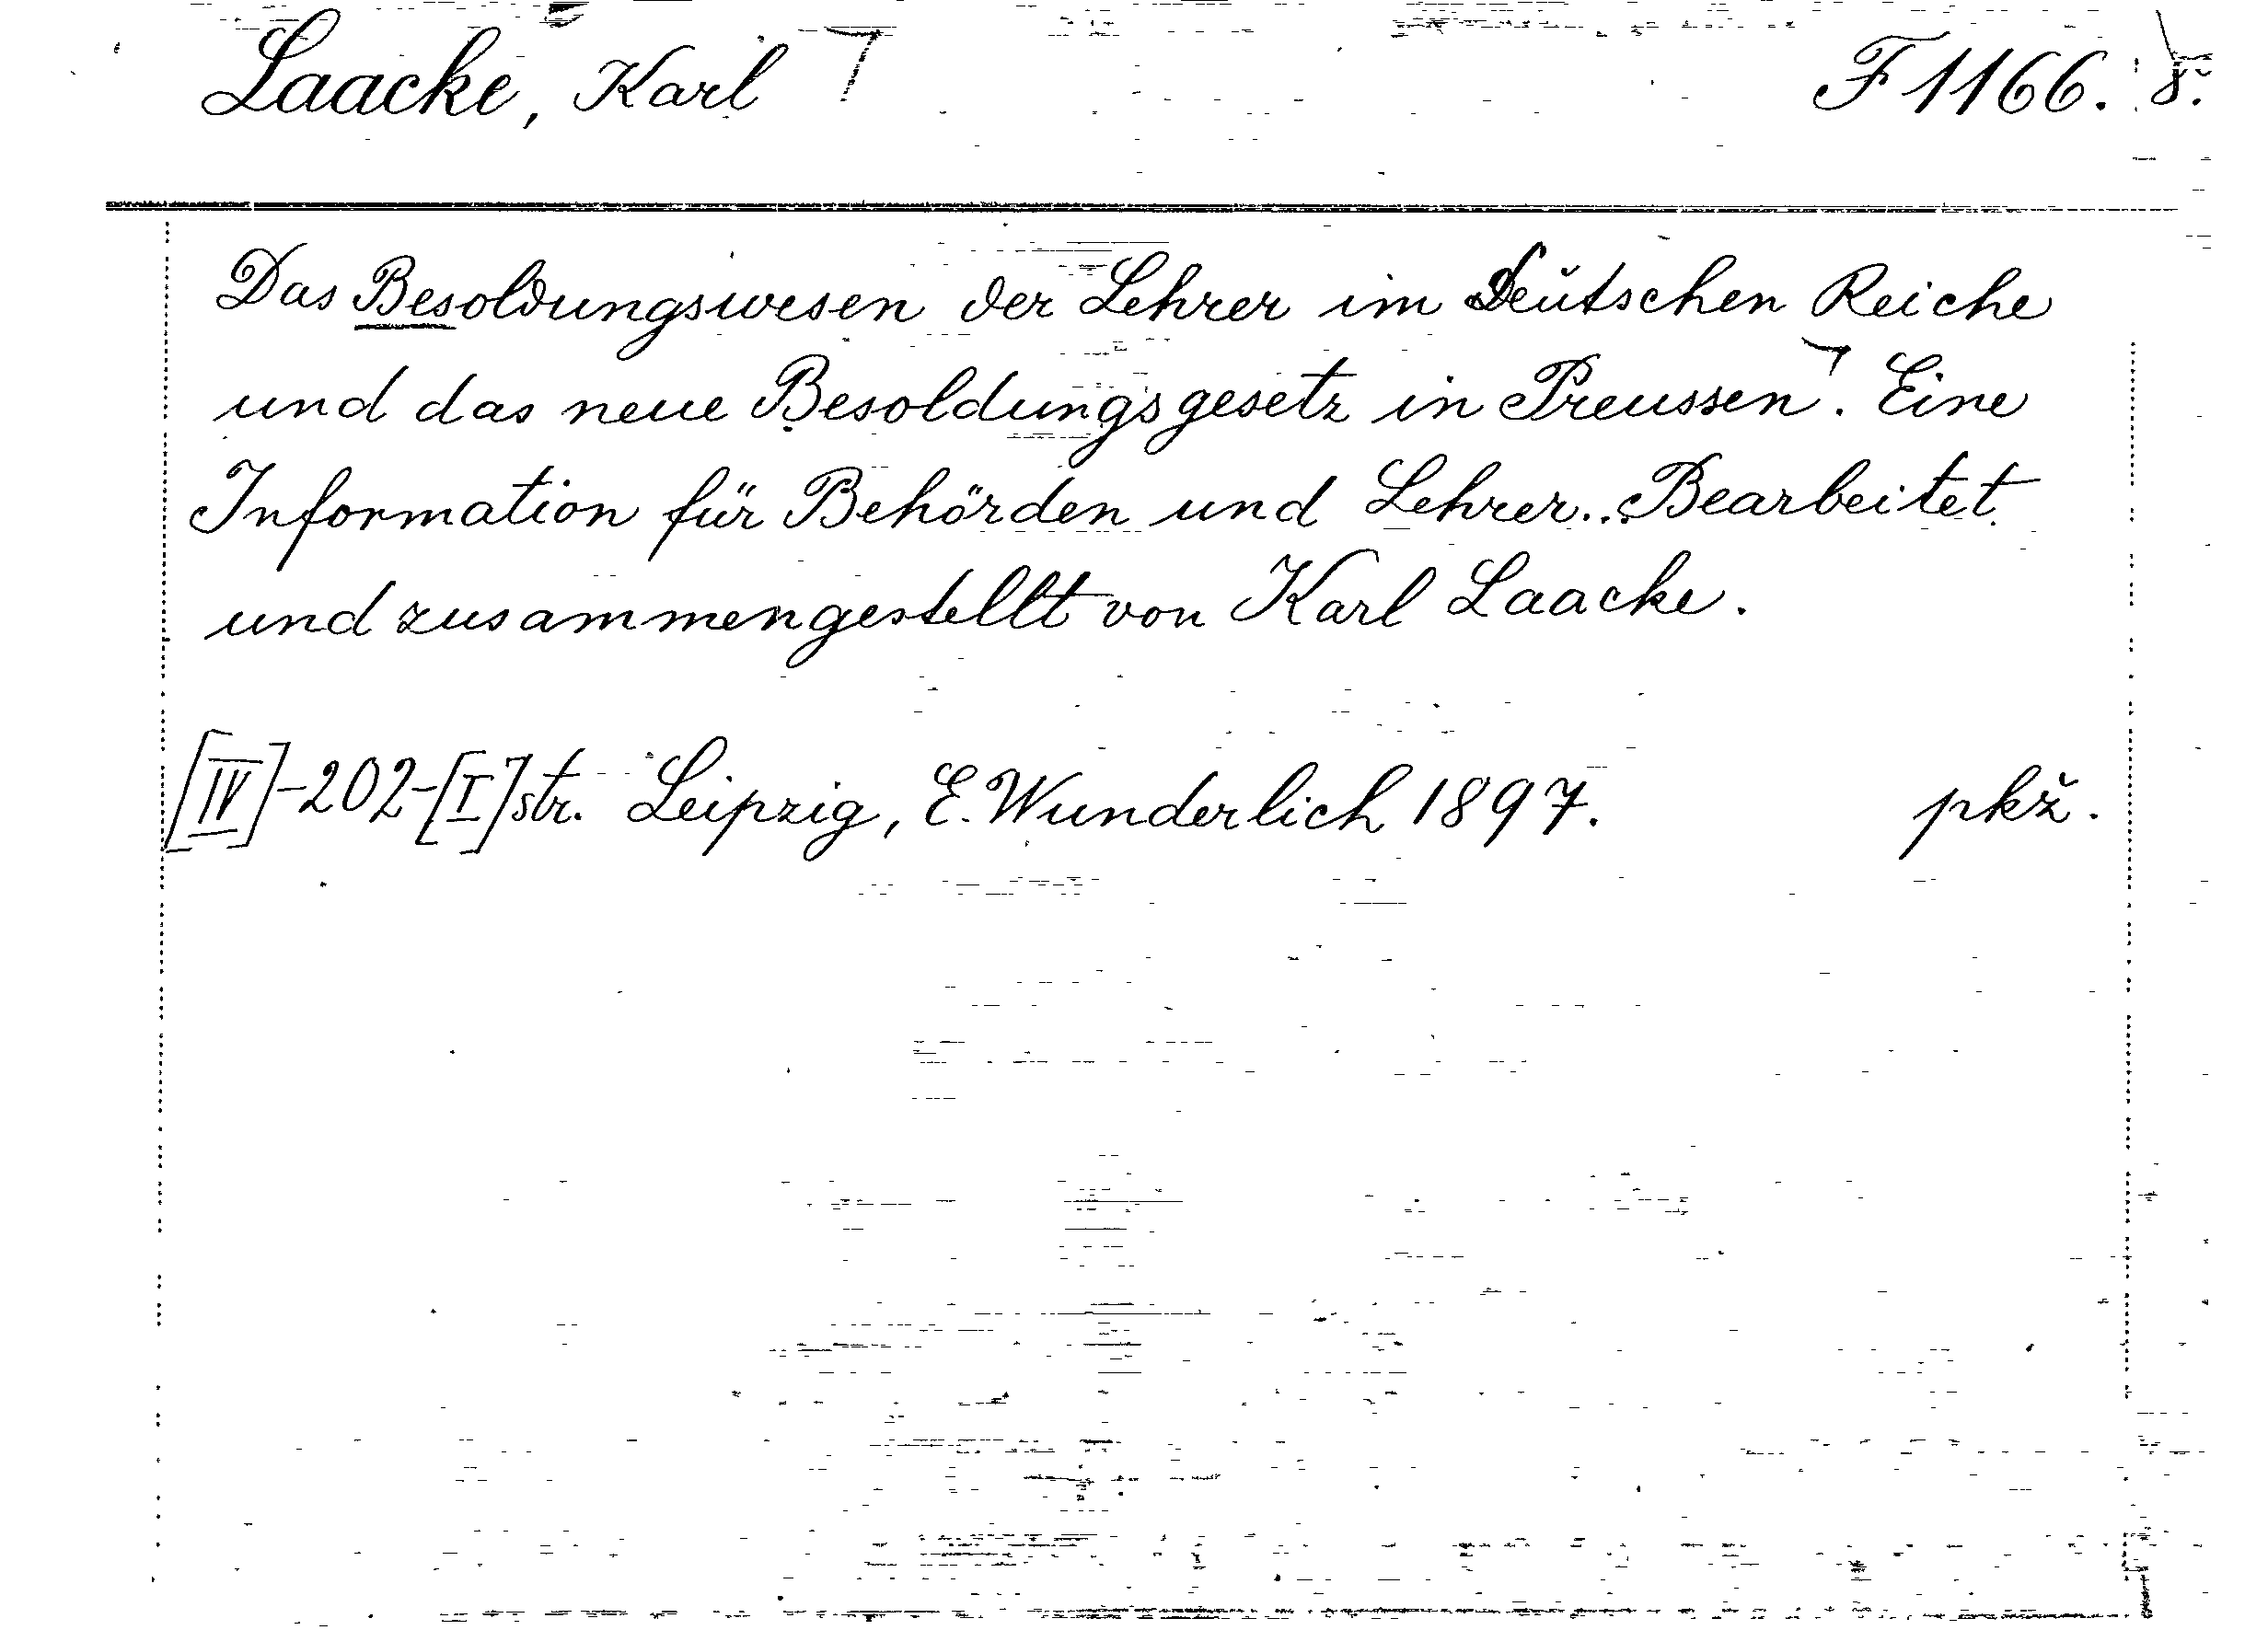 Laacke, Karl F 1166. 8.
Das Besoldungswesen der Lehrer im Deutschen Reiche
und das neue Besoldungsgesetz in Preussen. Eine
Information für Behörden und Lehrer... Bearbeitet
und zusammengestellt von Karl Laacke.
[IV]-202-[I] str. Leipzig, E. Wunderlich 1897. pkž.